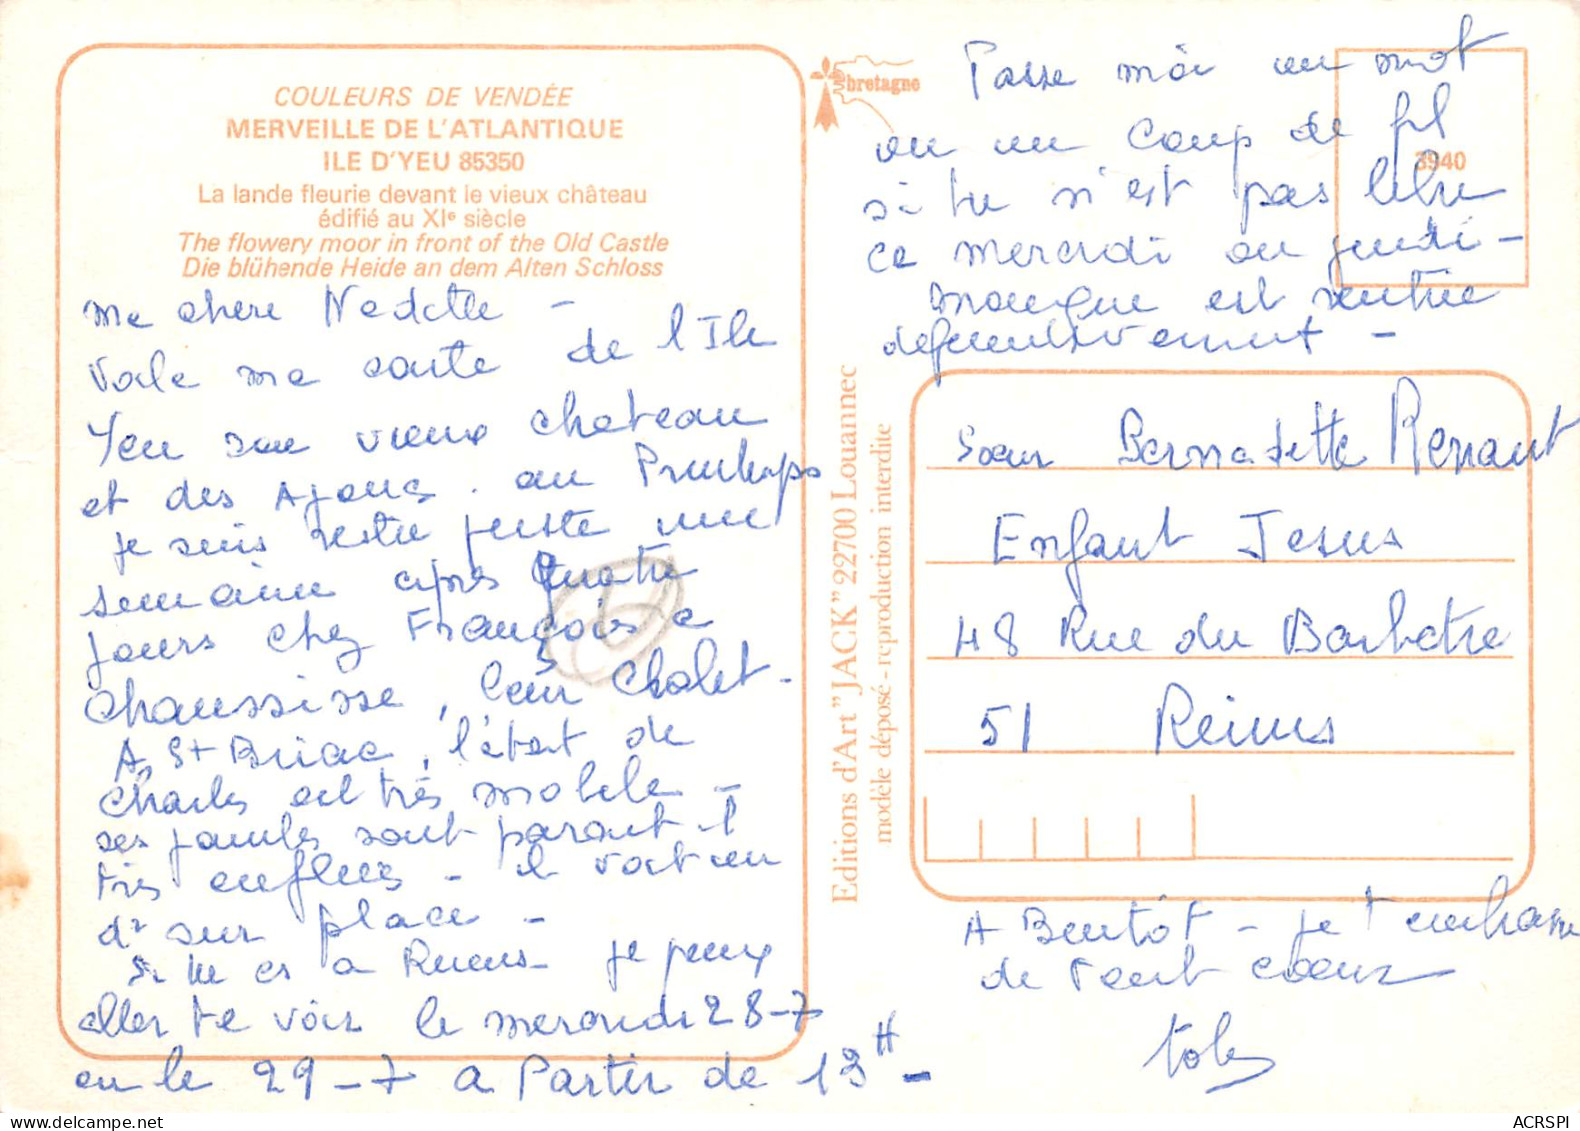 COULEURS DE VENDÉE
MERVEILLE DE L'ATLANTIQUE
ILE D'YEU 85350
La lande fleurie devant le vieux château
édifié au XIe siècle
The flowery moor in front of the Old Castle
Die blühende Heide an dem Alten Schloss
ma chere
voila ma carte de l'Ile
Yeu son vieux chateau
et des Ajoncs. au Printemps
je suis juste une
semaine après quatre
jours chez François a
chaussisse, leur Chalet-
A St Briac, l'état de
Charles est très mobile-
ses jambes sont parait-il
très enflées - il voit un
dr sur place -
Si tu es a Reims je peux
aller te voir le mercredi 28-7
ou le 29-7 a Partir de 13H-
bretagne
Passe moi un mot
ou un coup de fil
si tu n'est pas libre
ce mercredi ou jeudi-
est rentrée
definitivement -
3940
Editions d'Art "JACK" 22700 Louannec
modèle déposé - reproduction interdite
Sœur Bernadette Renaut
Enfant Jesus
48 Rue du Barbatre
51 Reims
A Bientôt - je t'embrasse
de tout coeur
ACRSPI